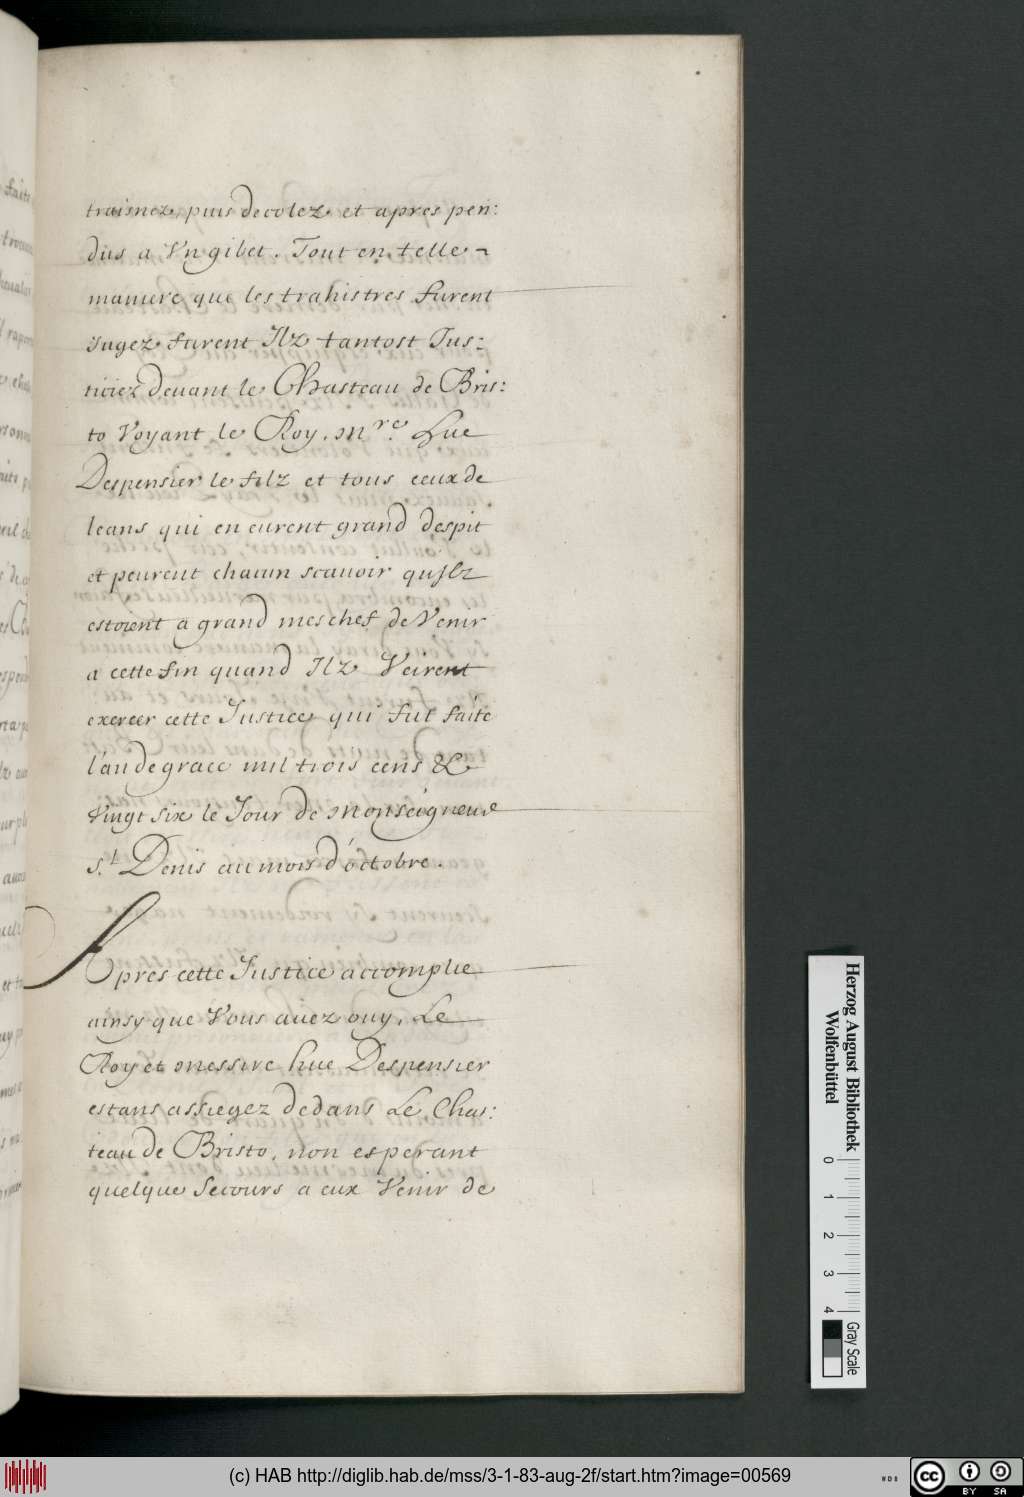 traisnez, puis decolez et apres pen:
dus a Vn gibet. Tout en telle ¬
maniere que les trahistres furent
Jugez furent Ilz tantost Jus:
ticiez devant le Chasteau de Bris:
to Voyant le Roy, Mre. Hue
Despensier le filz et tous ceux de
leans qui en eurent grand despit
et peurent chacun scauoir quilz
estoient a grand meschef de Venir
a cette fin quand Ilz Veirent
exercer cette Justice qui fut faite
l'an de grace mil trois cens &
Vingt six le Jour de Monseigneur
St. Denis au mois d'octobre.
Apres cette Justice accomplie
ainsy que Vous auez ouy, Le
Roy et Messire hue Despensier
estans assiegez dedans Le Chas:
teau de Bristo, non esperant
quelque Secours a eux Venir de
Herzog August Bibliothek
Wolfenbüttel
0 1 2 3 4
Gray Scale
(c) HAB http://diglib.hab.de/mss/3-1-83-aug-2f/start.htm?image=00569
WDB
CC BY SA